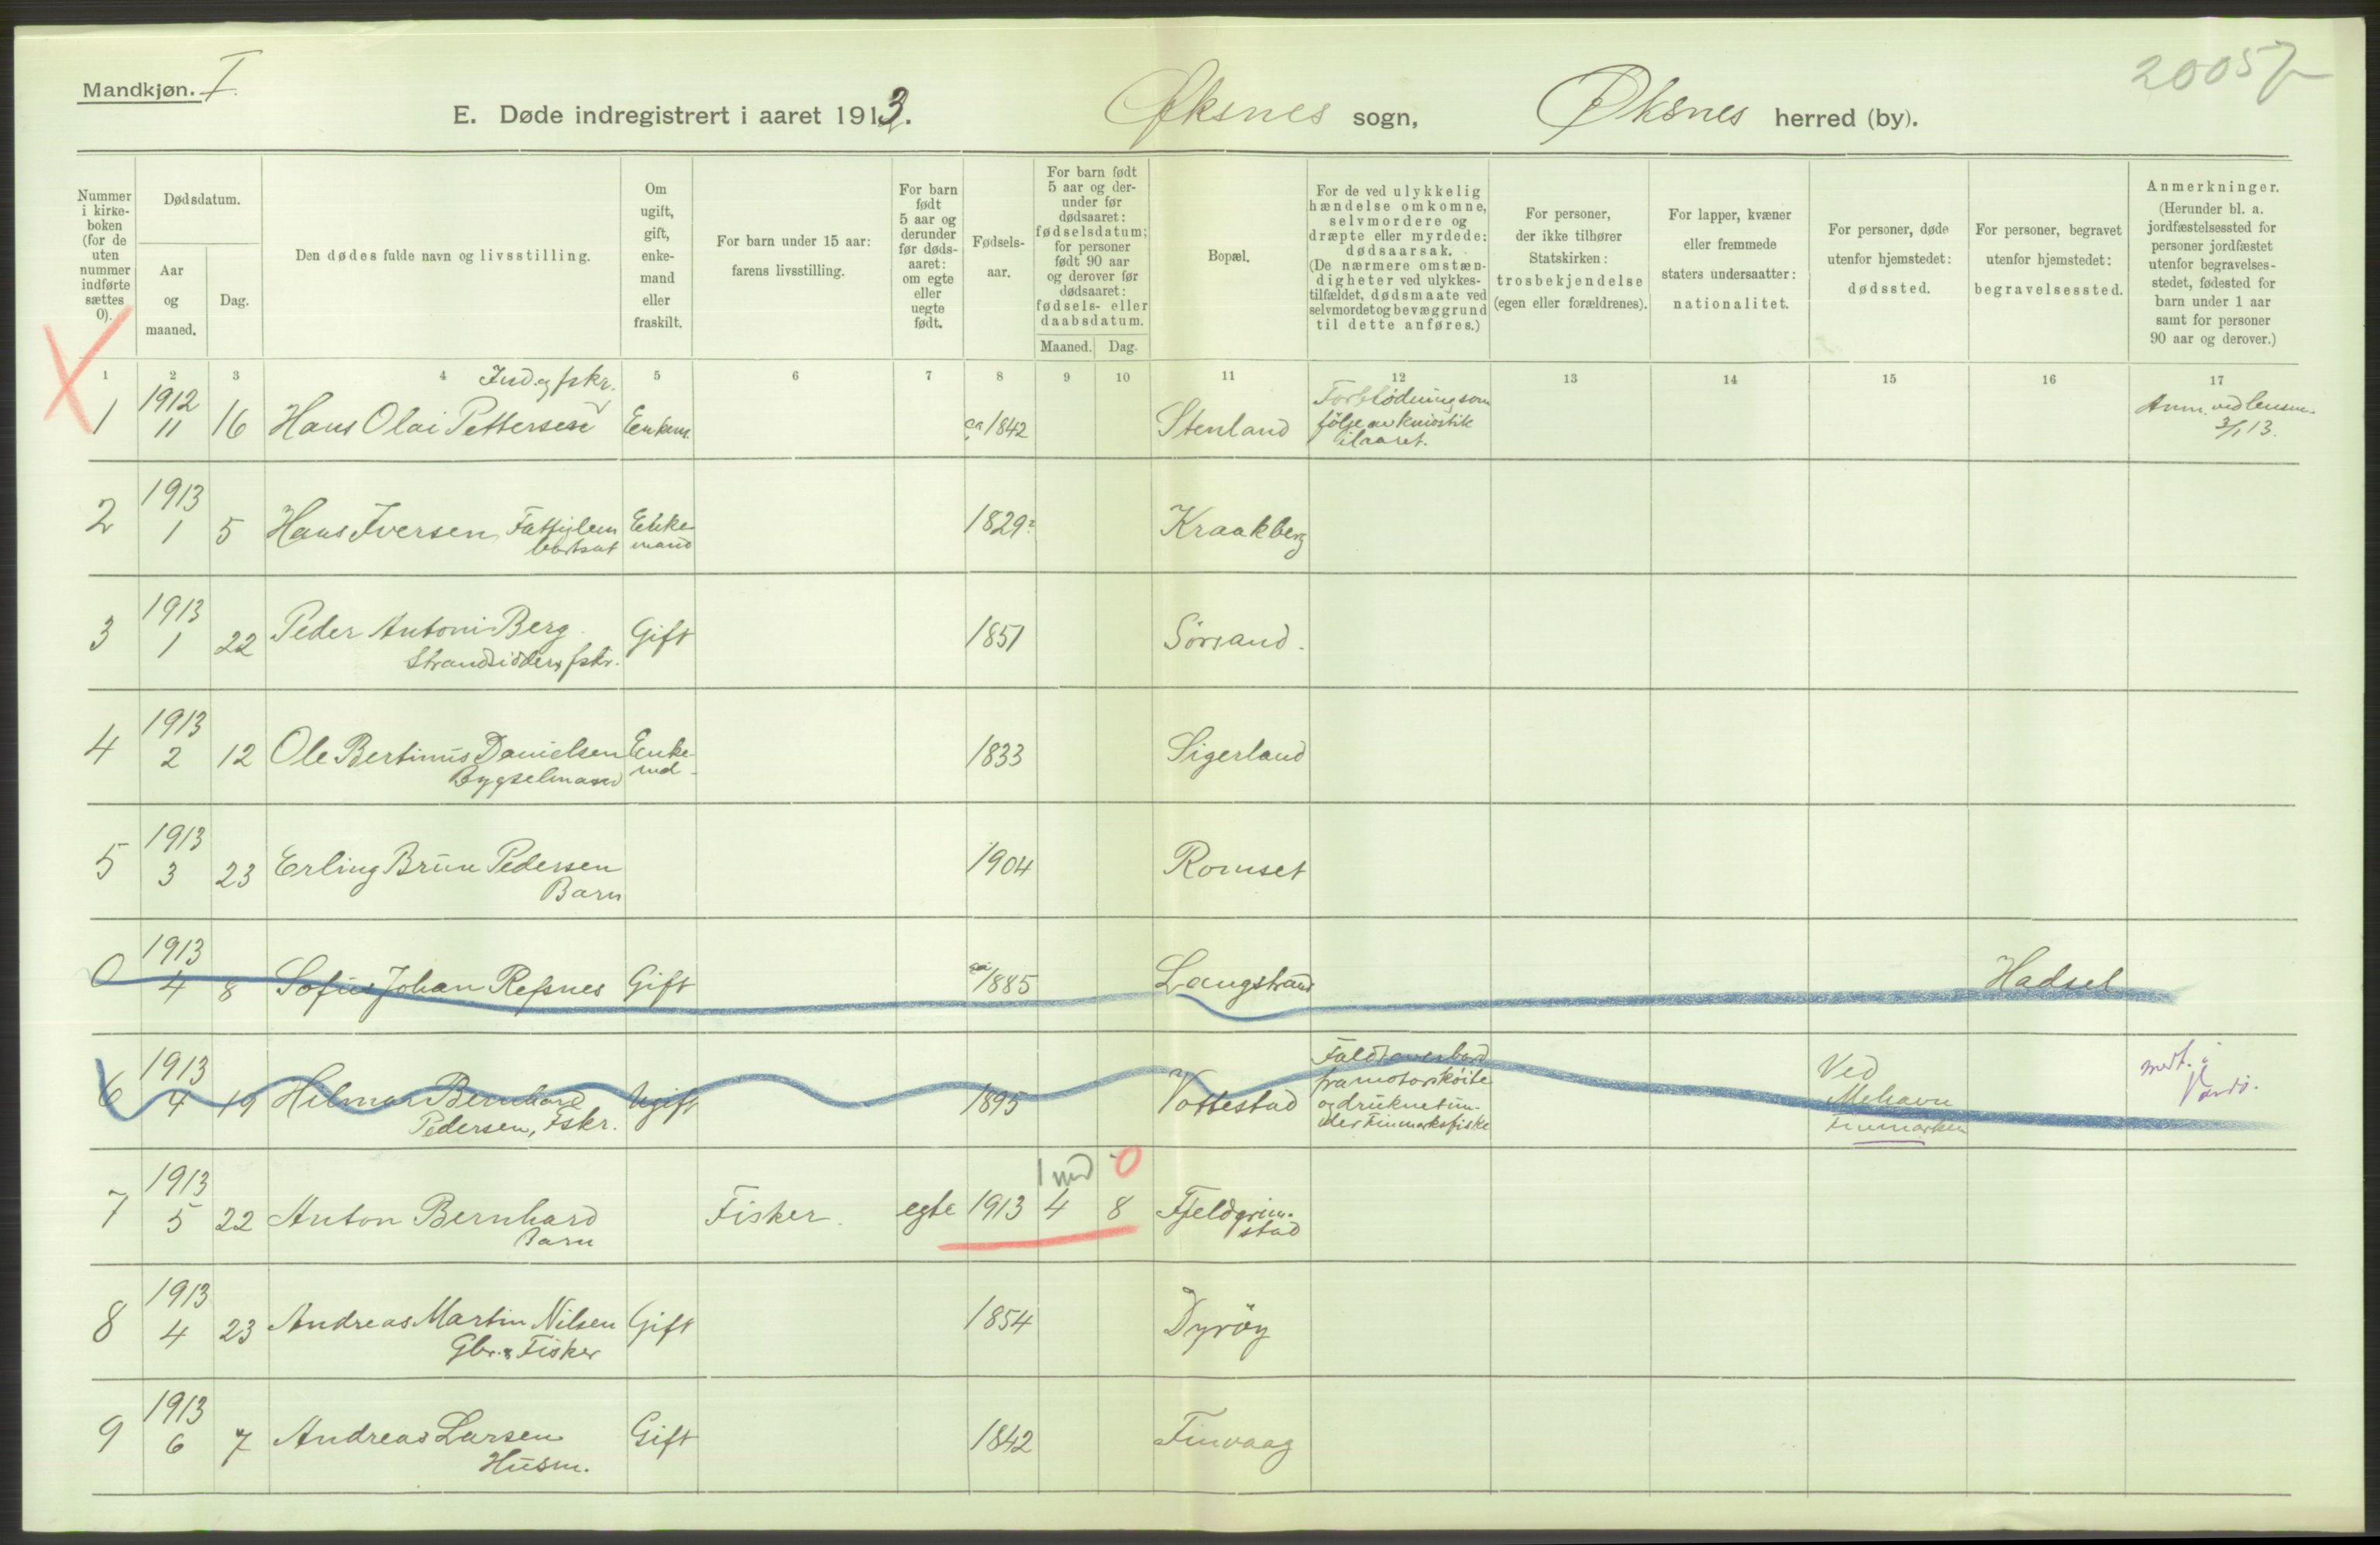 Mandkjøn. I.
20057
E. Døde indregistrert i aaret 1913. Øksnes sogn, Øksnes herred (by).
Nummer i kirke-boken (for de uten nummer indførte sættes 0).
Dødsdatum.
Aar og maaned.
Dag.
Den dødes fulde navn og livsstilling.
Om ugift, gift, enke-mand eller fraskilt.
For barn under 15 aar: farens livsstilling.
For barn født 5 aar og derunder før døds-aaret: om egte eller uegte født.
Fødsels-aar.
For barn født 5 aar og der-under før dødsaaret: fødselsdatum; for personer født 90 aar og derover før dødsaaret: fødsels- eller daabsdatum.
Maaned. Dag.
Bopæl.
For de ved ulykkelig hændelse omkomne, selvmordere og dræpte eller myrdede: dødsaarsak. (De nærmere omstæn-digheter ved ulykkes-tilfældet, dødsmaate ved selvmordet og bevæggrund til dette anføres.)
For personer, der ikke tilhører Statskirken: trosbekjendelse (egen eller forældrenes).
For lapper, kvæner eller fremmede staters undersaatter: nationalitet.
For personer, døde utenfor hjemstedet: dødssted.
For personer, begravet utenfor hjemstedet: begravelsessted.
Anmerkninger. (Herunder bl. a. jordfæstelsessted for personer jordfæstet utenfor begravelses-stedet, fødested for barn under 1 aar samt for personer 90 aar og derover.)
1 2 3 4 5 6 7 8 9 10 11 12 13 14 15 16 17
Ind. og fskr.
1 1912 11 16 Hans Olai Pettersen Enkem. ca 1842 Stenland
Forblødning som
følge av knivstik
i laaret.
Anm. ved lensm.
3/1 13.
2 1913 1 5 Hans Iversen, Fattiglem
bortsat
Enke
mand
1829? Kraakberg
3 1913 1 22 Peder Antoni Berg
Strandsidder, fskr.
Gift 1851 Sørsand.
4 1913 2 12 Ole Bertinus Danielsen
Bygselmand
Enke-
md.
1833 Sigerland
5 1913 3 23 Erling Brun Pedersen
Barn
1904 Romset
0 1913 4 8 Sofus Johan Refsnes Gift ca 1885 Langstrand Hadsel
6 1913 4 19 Hilmar Bernhard
Pedersen, Fskr.
Ugift 1895 Vottestad
Faldt overbord
fra motorskøite
og druknet un-
der Finmarksfiske
Ved
Mehavn
Finmarken
medt. i
Vardø.
1 md 0
7 1913 5 22 Anton Bernhard
Barn
Fisker. egte 1913 4 8 Fjeldgrim-
stad
8 1913 4 23 Andreas Martin Nilsen
Gbr. & Fisker
Gift 1854 Dyrøy
9 1913 6 7 Andreas Larsen
Husm.
Gift 1842 Finvaag